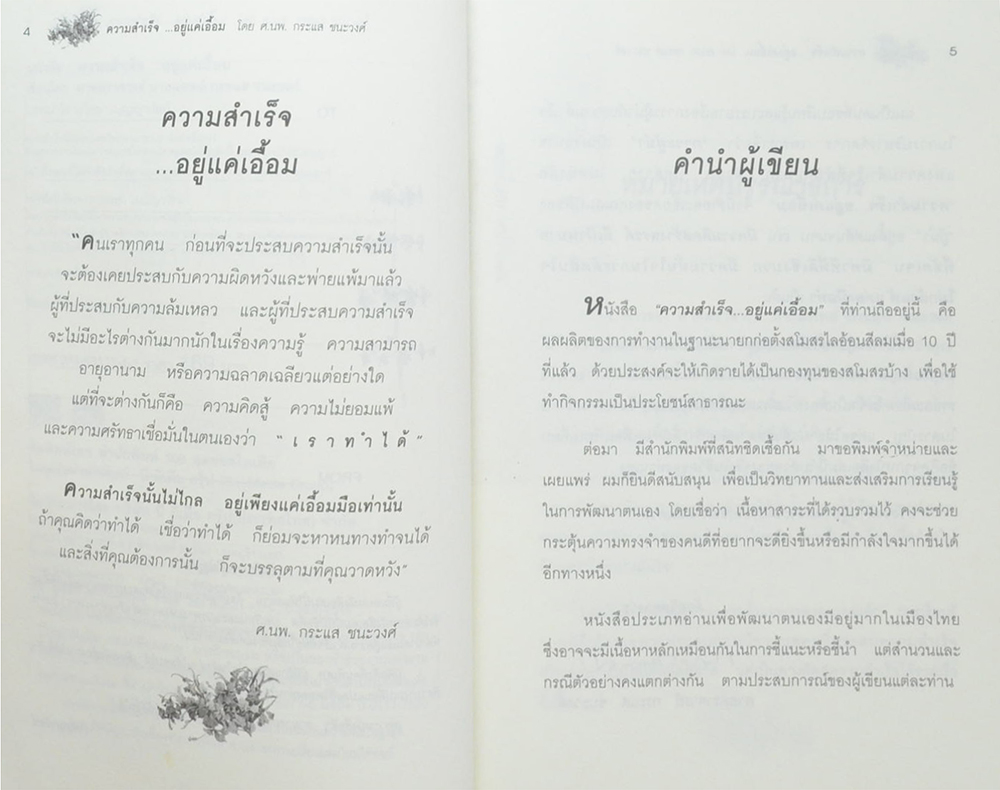 4
ความสำเร็จ ...อยู่แค่เอื้อม โดย ศ.นพ. กระแส ชนะวงศ์
ความสำเร็จ
...อยู่แค่เอื้อม
"คนเราทุกคน ก่อนที่จะประสบความสำเร็จนั้น
จะต้องเคยประสบกับความผิดหวังและพ่ายแพ้มาแล้ว
ผู้ที่ประสบกับความล้มเหลว และผู้ที่ประสบความสำเร็จ
จะไม่มีอะไรต่างกันมากนักในเรื่องความรู้ ความสามารถ
อายุอานาม หรือความฉลาดเฉลียวแต่อย่างใด
แต่ที่จะต่างกันก็คือ ความคิดสู้ ความไม่ยอมแพ้
และความศรัทธาเชื่อมั่นในตนเองว่า "เราทำได้"
ความสำเร็จนั้นไม่ไกล อยู่เพียงแค่เอื้อมมือเท่านั้น
ถ้าคุณคิดว่าทำได้ เชื่อว่าทำได้ ก็ย่อมจะหาหนทางทำจนได้
และสิ่งที่คุณต้องการนั้น ก็จะบรรลุตามที่คุณวาดหวัง"
ศ.นพ. กระแส ชนะวงศ์
5
คำนำผู้เขียน
หนังสือ "ความสำเร็จ...อยู่แค่เอื้อม" ที่ท่านถืออยู่นี้ คือ
ผลผลิตของการทำงานในฐานะนายกก่อตั้งสโมสรไลอ้อนสีลมเมื่อ 10 ปี
ที่แล้ว ด้วยประสงค์จะให้เกิดรายได้เป็นกองทุนของสโมสรบ้าง เพื่อใช้
ทำกิจกรรมเป็นประโยชน์สาธารณะ
ต่อมา มีสำนักพิมพ์ที่สนิทชิดเชื้อกัน มาขอพิมพ์จำหน่ายและ
เผยแพร่ ผมก็ยินดีสนับสนุน เพื่อเป็นวิทยาทานและส่งเสริมการเรียนรู้
ในการพัฒนาตนเอง โดยเชื่อว่า เนื้อหาสาระที่ได้รวบรวมไว้ คงจะช่วย
กระตุ้นความทรงจำของคนดีที่อยากจะดียิ่งขึ้นหรือมีกำลังใจมากขึ้นได้
อีกทางหนึ่ง
หนังสือประเภทอ่านเพื่อพัฒนาตนเองมีอยู่มากในเมืองไทย
ซึ่งอาจจะมีเนื้อหาหลักเหมือนกันในการชี้แนะหรือชี้นำ แต่สำนวนและ
กรณีตัวอย่างคงแตกต่างกัน ตามประสบการณ์ของผู้เขียนแต่ละท่าน